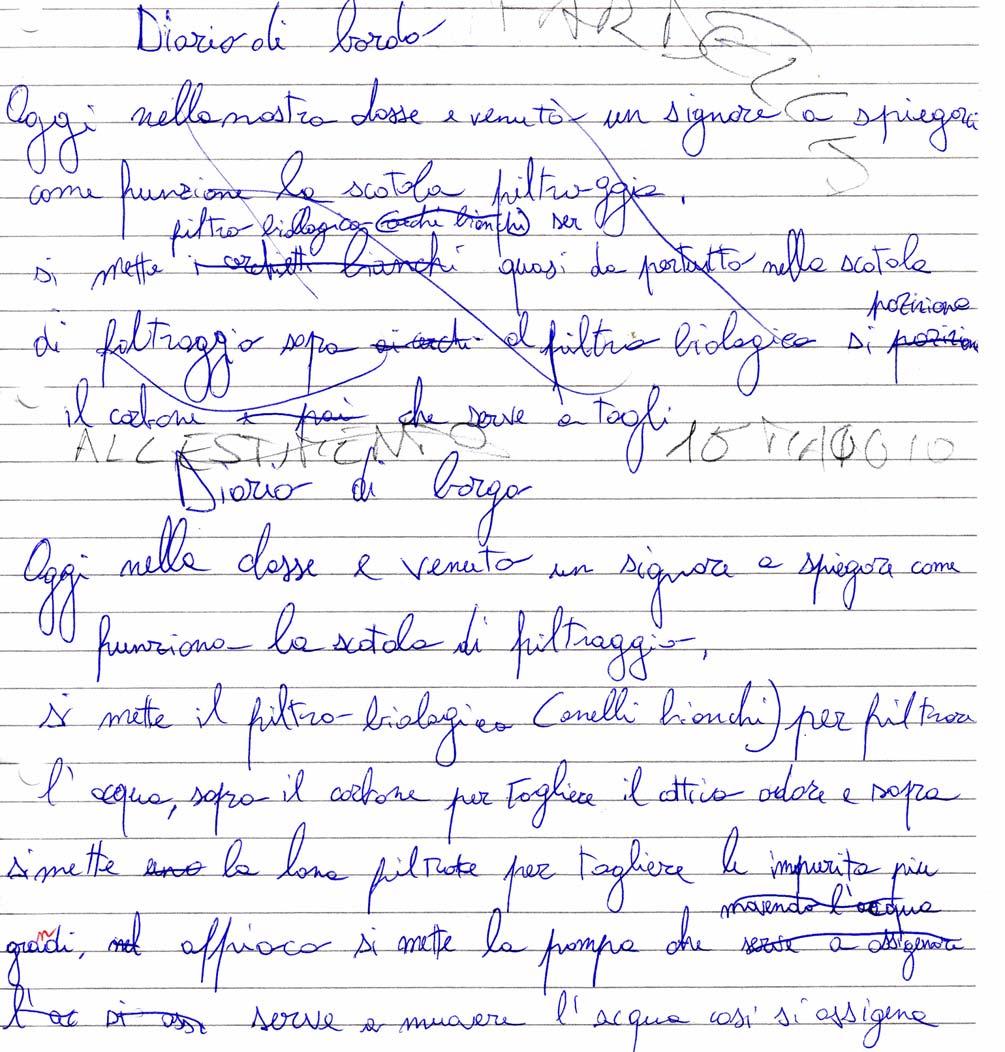 Diario di bordo
Oggi nella nostra classe e venuto un signore a spiegorci
come funzione la scatola filtroggio.
filtro biologico (cerchi bianchi) ser
si mette i cerchietti bianchi quasi da portutto nella scatola
pozizione
di filtraggio sopra ai cerchi al filtro biologico si pozizion
il carbone e poi che serve a togli
ALLESTIMENTO 15 MAGGIO
Diario di borgo
Oggi nella classe e venuto un signore a spiegare come
funziona la scatola di filtraggio,
si mette il filtro biologico (anelli bianchi) per filtrare
l'acqua, sopra il carbone per togliere il cattivo odore e sopra
si mette uno la lana filtrate per togliere le impurita piu
movendo l'acqua
grandi, nel affioco si mette la pompa che serve a ossigenare
l'ac si oss serve a muovere l'acqua cosi si ossigena